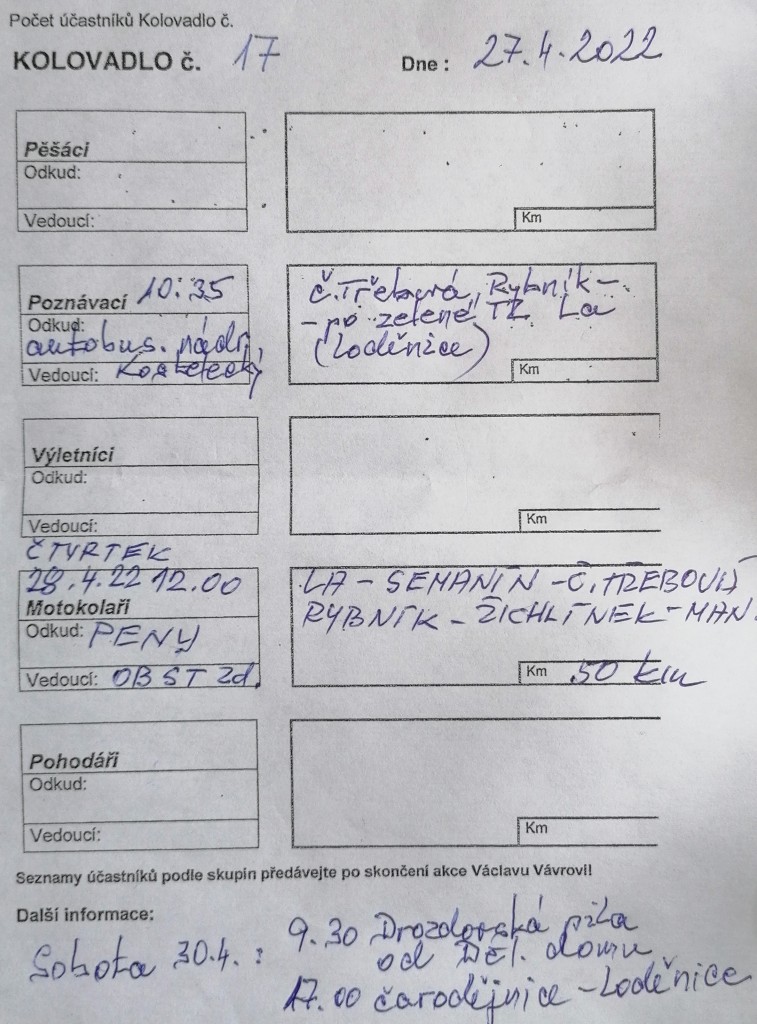 Počet účastníků Kolovadlo č.
KOLOVADLO č. 17 Dne : 27.4.2022
Pěšáci
Odkud:
Vedoucí:
Km
Poznávací 10:35
Odkud:
autobus. nádr.
Vedoucí: Kostelecký
Č.Třebová, Rybník -
- po zelené TZ La
(Loděnice)
Km
Výletníci
Odkud:
Vedoucí:
Km
ČTVRTEK
28.4.22 12.00
Motokolaři
Odkud: PENY
Vedoucí: OBST Zd.
LA - SEMANÍN - Č.TŘEBOVÁ
RYBNÍK - ŽICHLÍNEK - MAN.
Km 50 km
Pohodáři
Odkud:
Vedoucí:
Km
Seznamy účastníků podle skupin předávejte po skončení akce Václavu Vávrovi!
Další informace:
Sobota 30.4. : 9.30 Drozdovská pila
od Děl. domu
17.00 čarodějnice - Loděnice